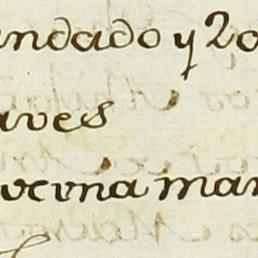 andado y Lo
aves
ocuna man